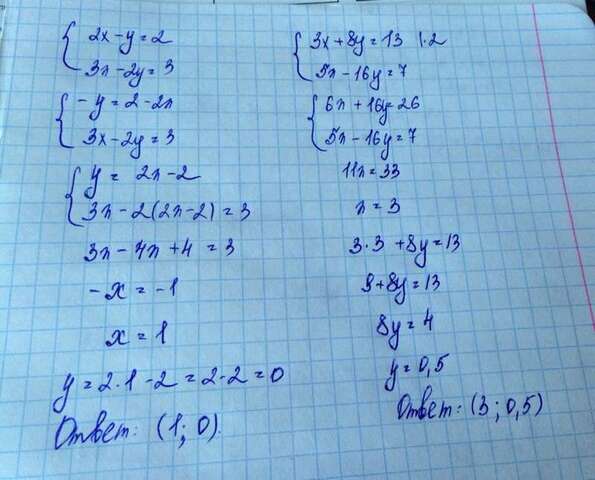 2x - y = 2
3x - 2y = 3
- y = 2 - 2x
3x - 2y = 3
y = 2x - 2
3x - 2(2x - 2) = 3
3x - 4x + 4 = 3
- x = -1
x = 1
y = 2·1 - 2 = 2 - 2 = 0
Ответ: (1; 0).
3x + 8y = 13 |·2
5x - 16y = 7
6x + 16y = 26
5x - 16y = 7
11x = 33
x = 3
3·3 + 8y = 13
9 + 8y = 13
8y = 4
y = 0,5
Ответ: (3; 0,5)